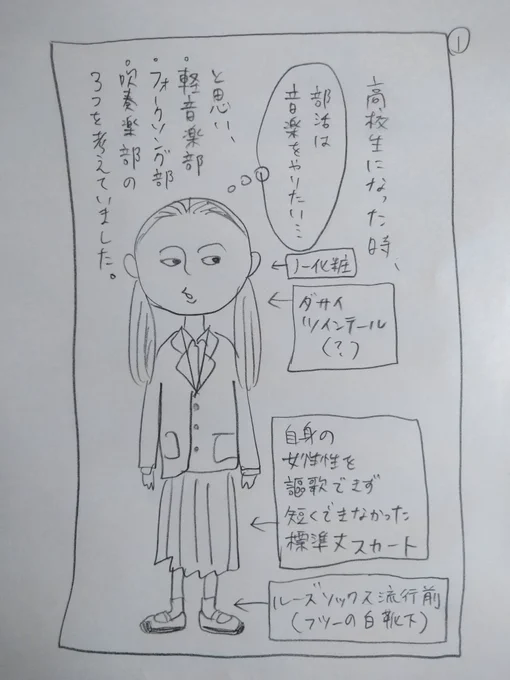 ①
高校生になった時、
部活は
音楽をやりたい…
と思い、
・軽音楽部
・フォークソング部
・吹奏楽部の
3つを考えていました。
ノー化粧
ダサイ
ツインテール
(?)
自身の
女性性を
謳歌できず
短くできなかった
標準丈スカート
ルーズソックス流行前
(フツーの白靴下)